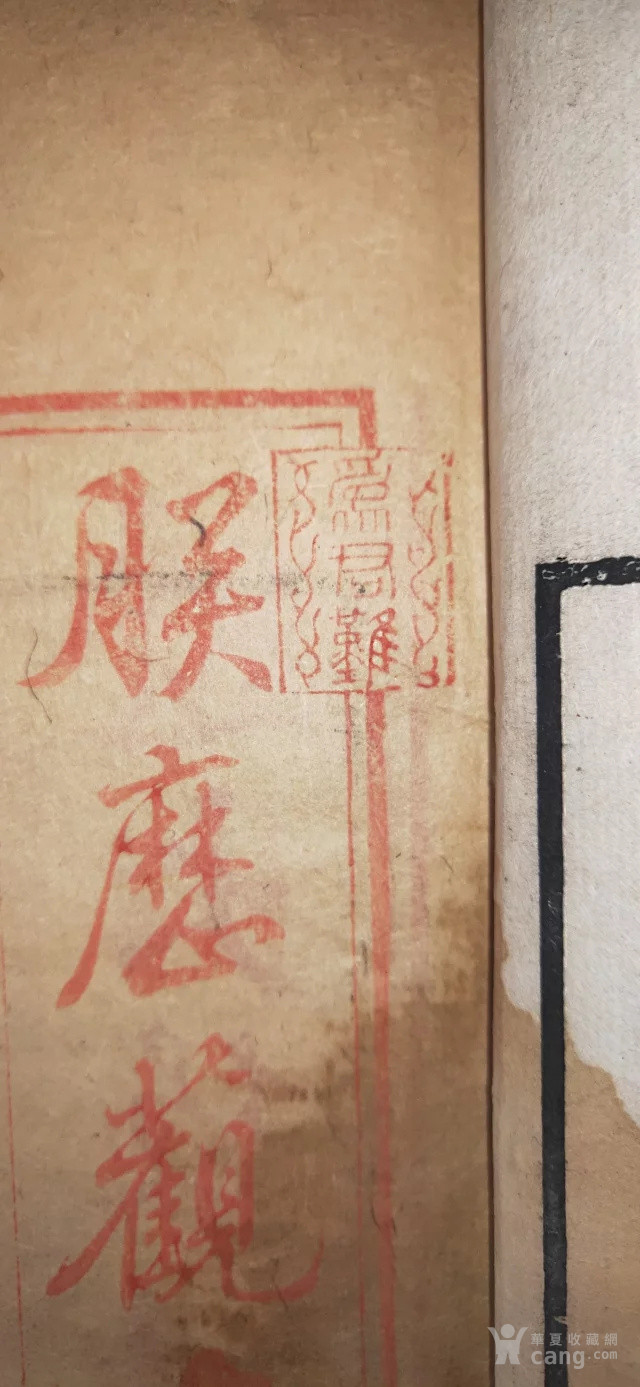 爲君難
朕歷觀
華夏收藏網
cang.com